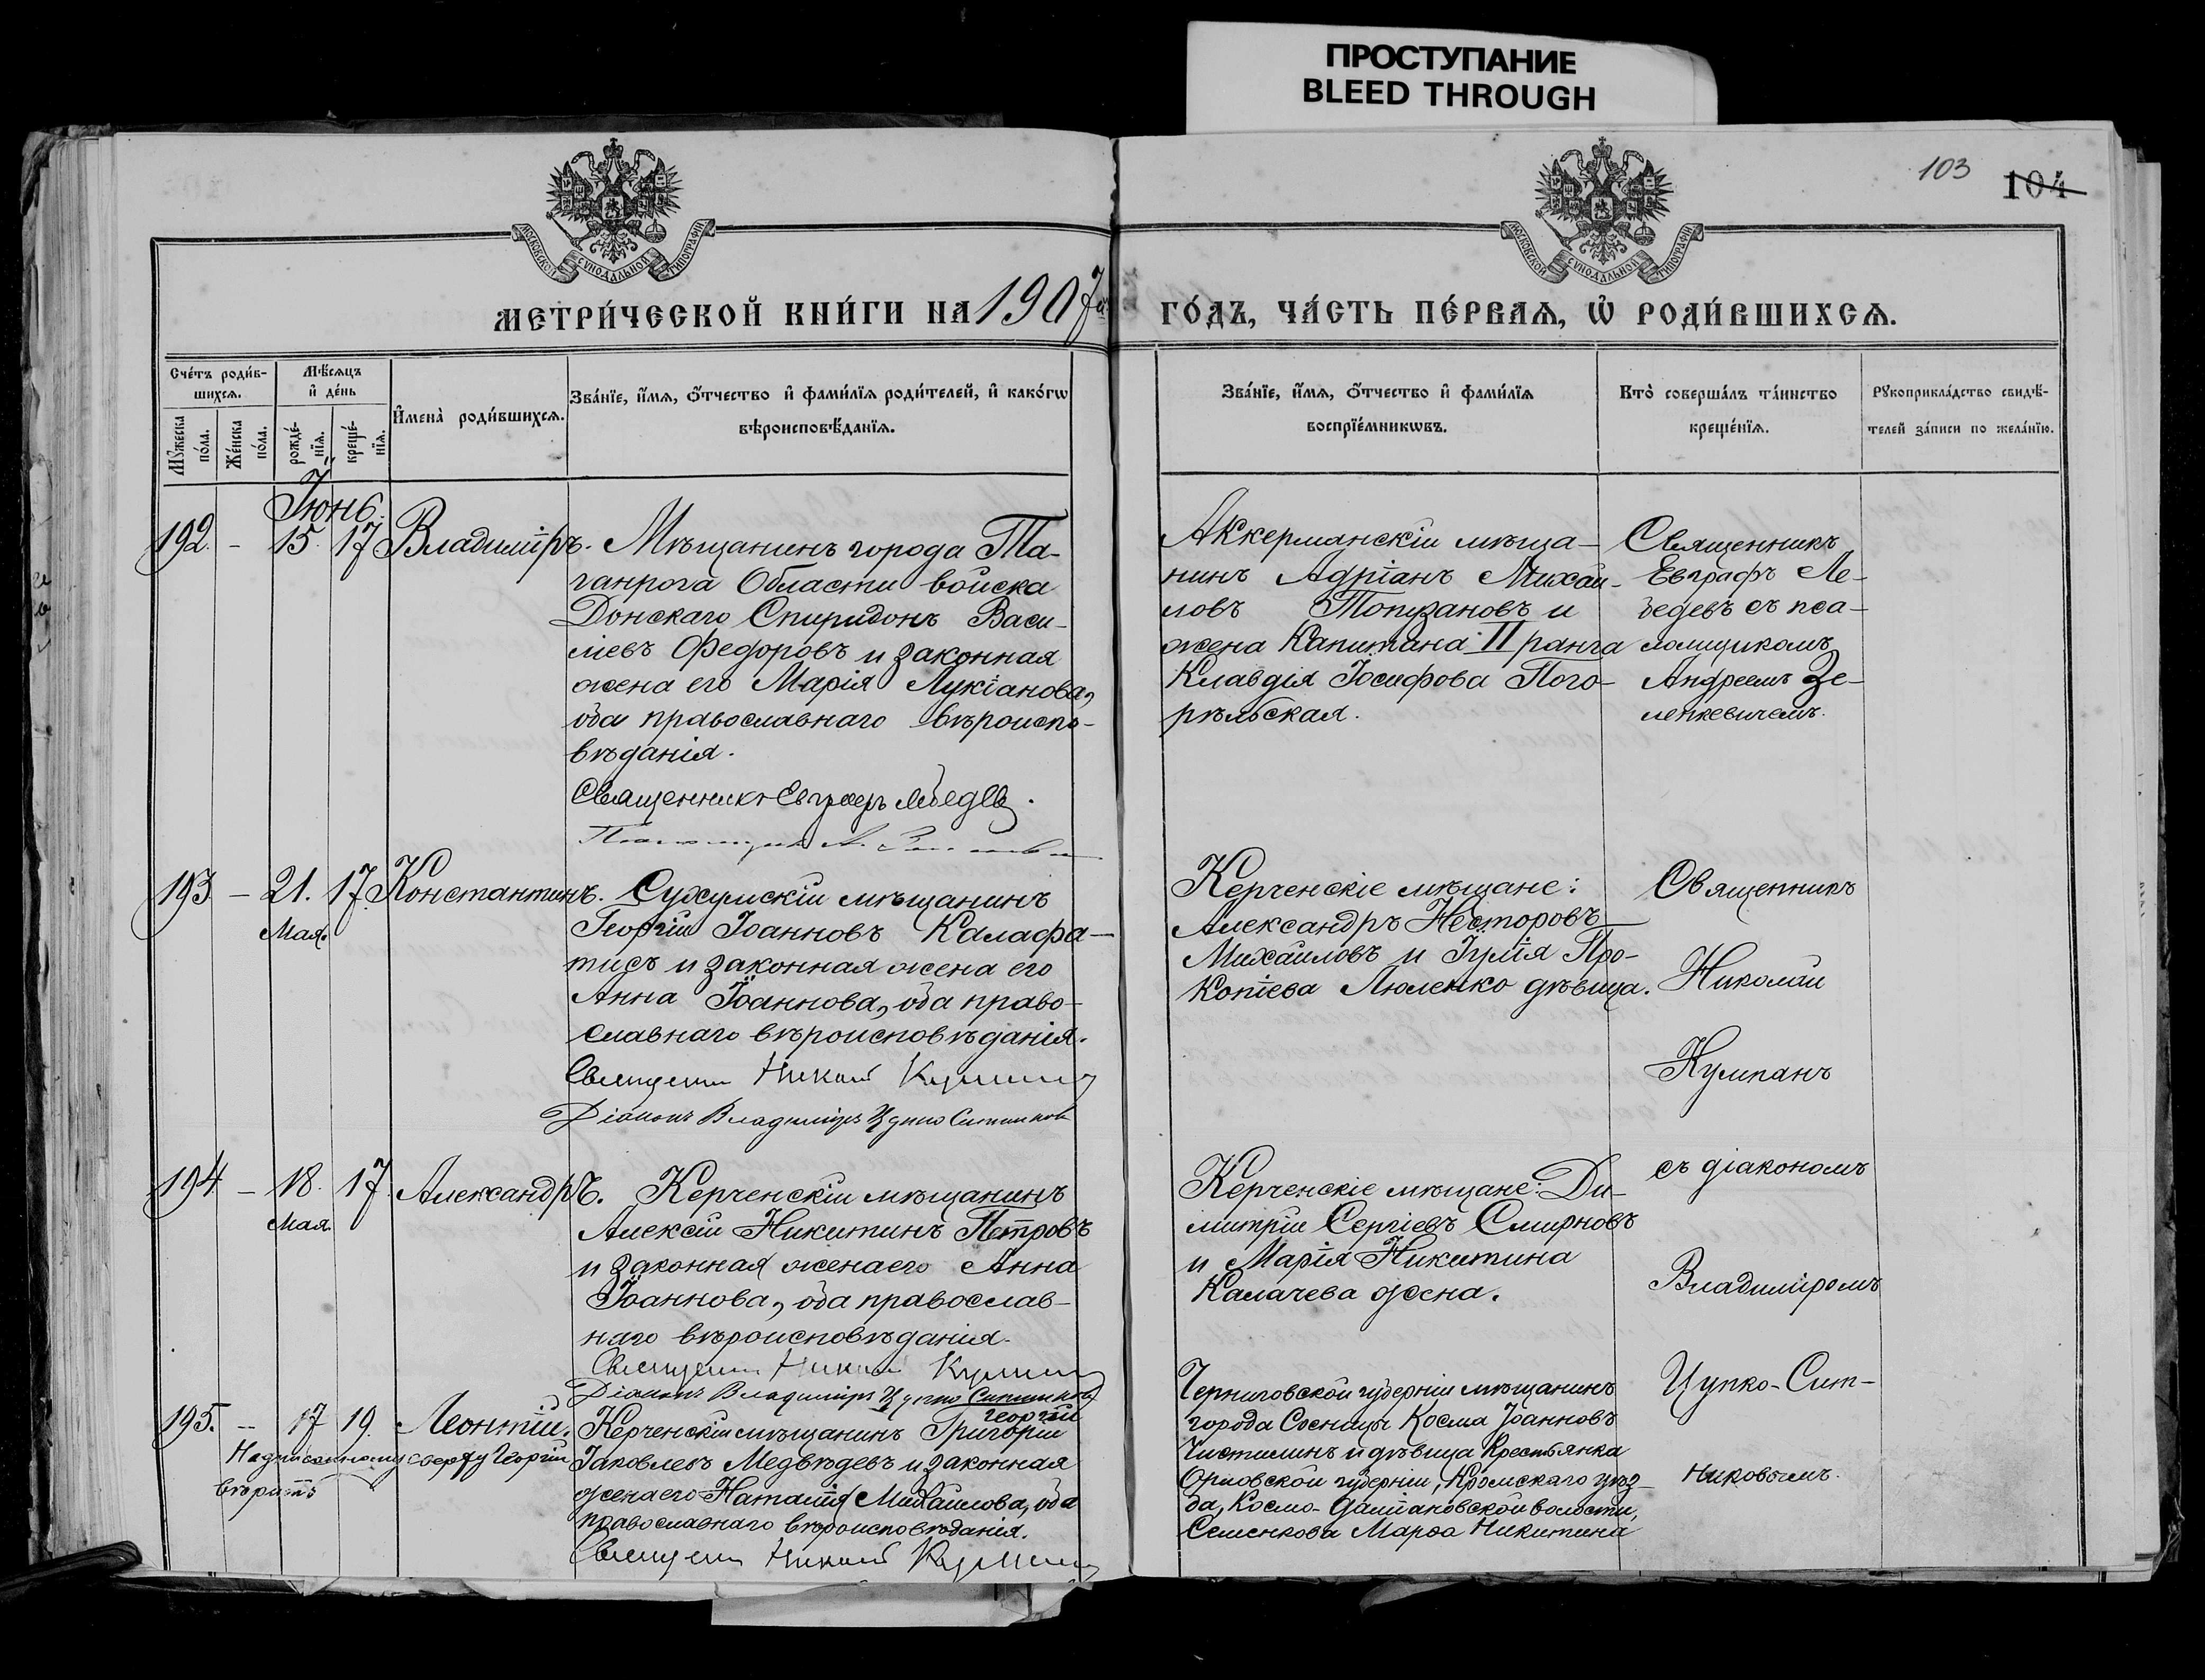 ПРОСТУПАНИЕ
BLEED THROUGH
103
104
МОСКОВСКОЙ СѴНОДАЛЬНОЙ ТИПОГРАФІИ
МОСКОВСКОЙ СѴНОДАЛЬНОЙ ТИПОГРАФІИ
МЕТРИ́ЧЕСКОЙ КНИ́ГИ НА 1907й
ГО́ДЪ, ЧА́СТЬ ПЕ́РВАѦ, Ѡ҆ РОДИ́ВШИХСѦ.
Сче́тъ роди́в-
шихсѧ.
Мꙋ́жеска по́ла.
Же́нска по́ла.
Мѣ́сѧцъ
и҆ де́нь
рожде́-
нїѧ.
креще́-
нїѧ.
И҆мена̀ роди́вшихсѧ.
Зва́нїе, и҆́мѧ, ѻ҆́тчество и҆ фами́лїѧ роди́телей, и҆ како́гѡ
вѣроисповѣ́данїѧ.
Зва́нїе, и҆́мѧ, ѻ҆́тчество и҆ фами́лїѧ
воспрїе́мникѡвъ.
Кто̀ соверша́лъ та́инство
креще́нїѧ.
Рꙋкоприкла́дство свидѣ́-
телей за́писи по жела́нїю.
Іюнь.
192. – 15. 17 Владиміръ. Мѣщанинъ города Та-
ганрога Области войска
Донскаго Спиридонъ Васи-
ліевъ Федоровъ и законная
жена его Марія Лукіанова,
оба православнаго вѣроиспо-
вѣданія.
Священникъ Евграфъ Лебедев.
Аккерманскій мѣща-
нинъ Адріанъ Михаи-
ловъ Топузановъ и
жена Капитана II ранга
Клавдія Іосифова Пого-
рѣльская.
Священникъ
Евграфъ Ле-
бедевъ съ пса-
ломщикомъ
Андреемъ Зе-
ленкевичемъ.
193 – 21. 17. Константинъ. Сухумскій мѣщанинъ
Мая.
Георгій Іоанновъ Калафа-
тисъ и законная жена его
Анна Іоаннова, оба право-
славнаго вѣроисповѣданія.
Священникъ Николай Кумпанъ
Діаконъ Владиміръ Цупко Ситников
Керченскіе мѣщане:
Александръ Несторовъ
Михаиловъ и Іулія Про-
копіева Люленко дѣвица.
Священникъ
Николай
Кумпанъ
194 – 18. 17. Александръ. Керченскій мѣщанинъ
Мая
Алексій Никитинъ Петровъ
и законная жена его Анна
Іоаннова, оба православ-
наго вѣроисповѣданія.
Священникъ Николай Кумпанъ
Діаконъ Владиміръ Цупко Ситников
Керченскіе мѣщане: Ди-
митрій Сергіевъ Смирновъ
и Марія Никитина
Калачева жена.
съ діакономъ
Владиміромъ
Цупко-Сит-
никовымъ.
195. – 17 19. Леонтій. Керченскій мѣщанинъ Григорій
Георгій
Надписанному сверху Георгій
вѣрить
Іаковлевъ Медвѣдевъ и законная
жена его Наталія Михаилова, оба
православнаго вѣроисповѣданія.
Священникъ Николай Кумпанъ
Черниговской губерніи мѣщанинъ
города Сосницы Косма Іоанновъ
Чистилинъ и дѣвица крестьянка
Орловской губерніи, Кромскаго уѣз-
да, Космо-Даміановской волости,
Семенкова Марѳа Никитина